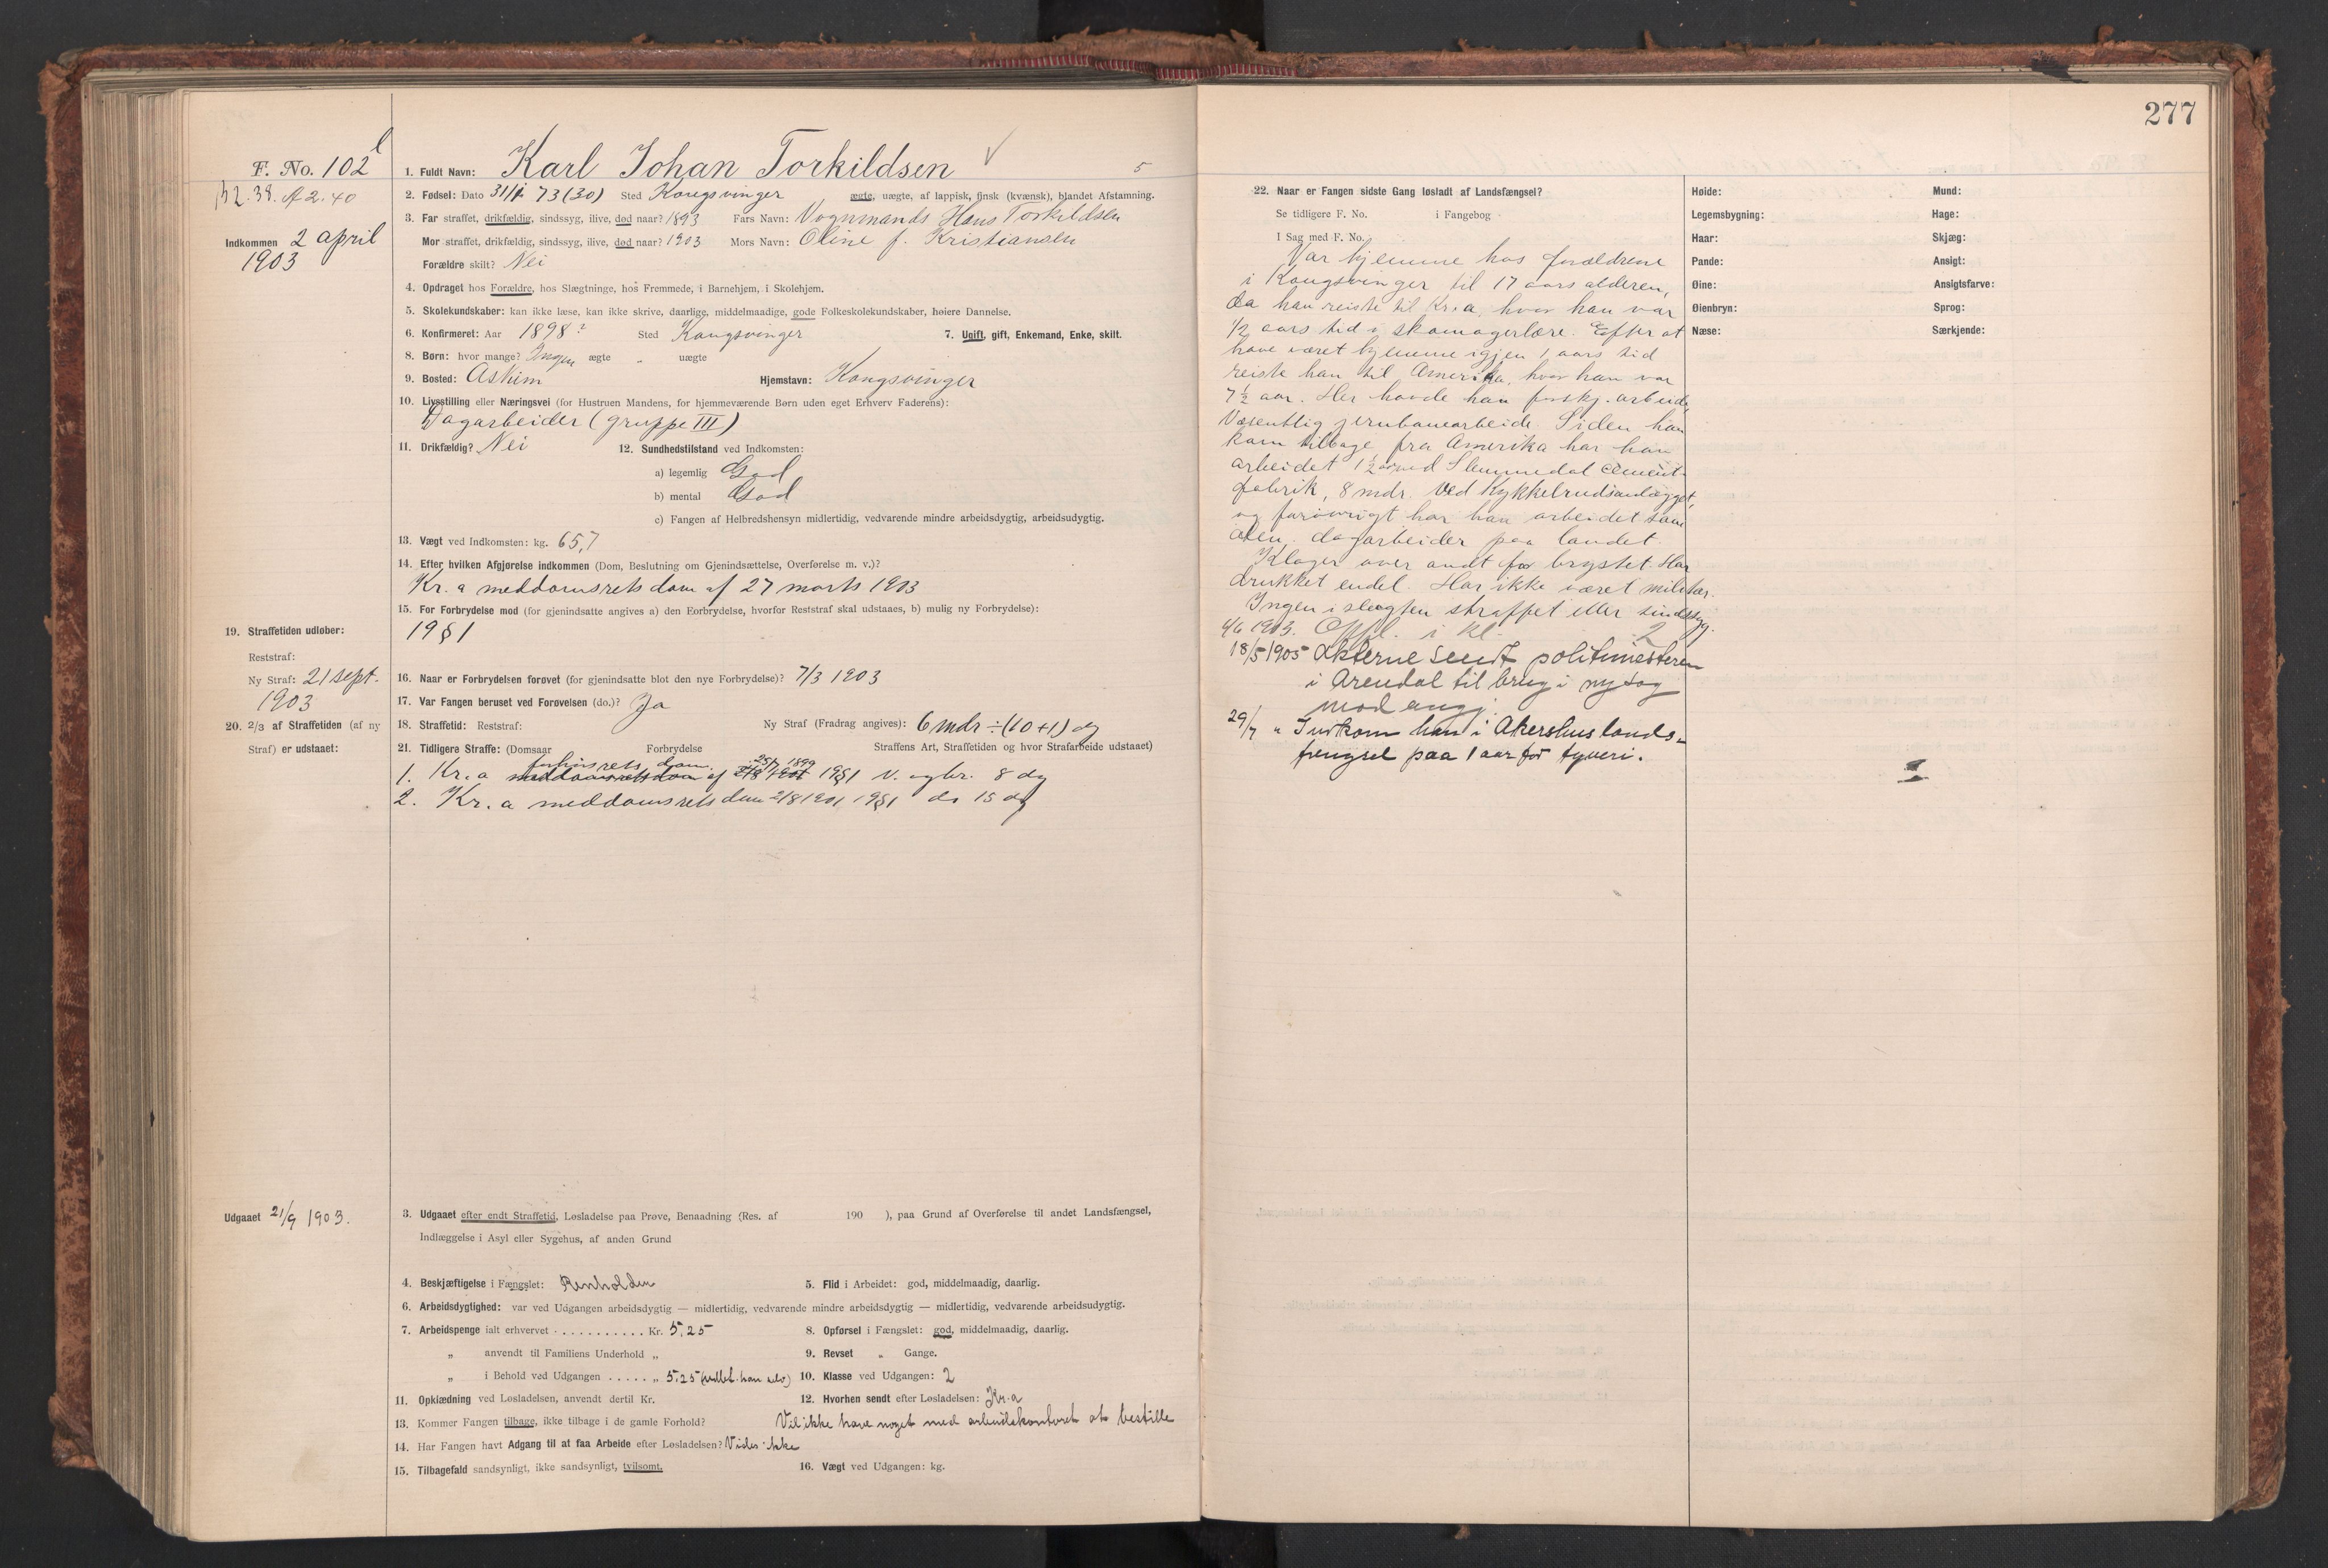 277
F. No. 102
B2.38. A2.40
Indkommen 2 april
1903
1. Fuldt Navn: Karl Johan Torkildsen
5
2. Fødsel: Dato 31/1 73 (30) Sted Kongsvinger ægte, uægte, af lappisk, finsk (kvænsk), blandet Afstamning.
3. Far straffet, drikfældig, sindssyg, ilive, død naar? 1893 Fars Navn: Vognmands Hans Torkildsen
Mor straffet, drikfældig, sindssyg, ilive, død naar? 1903 Mors Navn: Oline f. Kristiansen
Forældre skilt? Nei
4. Opdraget hos Forældre, hos Slægtninge, hos Fremmede, i Barnehjem, i Skolehjem.
5. Skolekundskaber: kan ikke læse, kan ikke skrive, daarlige, middelmaadige, gode Folkeskolekundskaber, høiere Dannelse.
6. Konfirmeret: Aar 1898? Sted Kongsvinger 7. Ugift, gift, Enkemand, Enke, skilt.
8. Børn: hvor mange? Ingen ægte „ uægte
9. Bosted: Askim Hjemstavn: Kongsvinger
10. Livsstilling eller Næringsvei (for Hustruen Mandens, for hjemmeværende Børn uden eget Erhverv Faderens):
Dagarbeider (gruppe III)
11. Drikfældig? Nei 12. Sundhedstilstand ved Indkomsten:
a) legemlig God
b) mental God
c) Fangen af Helbredshensyn midlertidig, vedvarende mindre arbeidsdygtig, arbeidsudygtig.
13. Vægt ved Indkomsten: kg. 65,7
14. Efter hvilken Afgjørelse indkommen (Dom, Beslutning om Gjenindsættelse, Overførelse m. v.)?
Kr.a meddomsrets dom af 27 marts 1903
15. For Forbrydelse mod (for gjenindsatte angives a) den Forbrydelse, hvorfor Reststraf skal udstaaes, b) mulig ny Forbrydelse):
19 § 1
19. Straffetiden udløber:
Reststraf:
Ny Straf: 21 sept.
1903
20. 2/3 af Straffetiden (af ny
Straf) er udstaaet:
16. Naar er Forbrydelsen forøvet (for gjenindsatte blot den nye Forbrydelse)? 7/3 1903
17. Var Fangen beruset ved Forøvelsen (do.)? Ja
18. Straffetid: Reststraf: Ny Straf (Fradrag angives): 6 mdr ÷ (10+1) dg
21. Tidligere Straffe: (Domsaar Forbrydelse Straffens Art, Straffetiden og hvor Strafarbeide udstaaet)
forhørsrets dom 25/7 1899
1. Kr.a meddomsrets dom af 2/8 1901 19 § 1 v. og br. 8 dg
2. Kr.a meddomsrets dom 2/8 1901 19 § 1 do 15 dg
Udgaaet 21/9 1903.
3. Udgaaet efter endt Straffetid, Løsladelse paa Prøve, Benaadning (Res. af 190 ), paa Grund af Overførelse til andet Landsfængsel,
Indlæggelse i Asyl eller Sygehus, af anden Grund
4. Beskjæftigelse i Fængslet: Renholden 5. Flid i Arbeidet: god, middelmaadig, daarlig.
6. Arbeidsdygtighed: var ved Udgangen arbeidsdygtig — midlertidig, vedvarende mindre arbeidsdygtig — midlertidig, vedvarende arbeidsudygtig.
7. Arbeidspenge ialt erhvervet . . . . . . . . . . Kr. 5.25 8. Opførsel i Fængslet: god, middelmaadig, daarlig.
„ anvendt til Familiens Underhold „ 9. Revset „ Gange.
„ i Behold ved Udgangen . . . . . „ 5.25 (udbet. han selv) 10. Klasse ved Udgangen: 2
11. Opklædning ved Løsladelsen, anvendt dertil Kr. 12. Hvorhen sendt efter Løsladelsen: Kr.a
13. Kommer Fangen tilbage, ikke tilbage i de gamle Forhold? Vil ikke have noget med arbeidskontoret at bestille
14. Har Fangen havt Adgang til at faa Arbeide efter Løsladelsen? Vides ikke
15. Tilbagefald sandsynligt, ikke sandsynligt, tvilsomt. 16. Vægt ved Udgangen: kg.
22. Naar er Fangen sidste Gang løsladt af Landsfængsel?
Se tidligere F. No. i Fangebog
I Sag med F. No.
Var hjemme hos forældrene
i Kongsvinger til 17 aars alderen,
da han reiste til Kr.a, hvor han var
1/2 aars tid i skomagerlære. Efter at
have været hjemme igjen 1 aars tid
reiste han til Amerika, hvor han var
7 1/2 aar. Her havde han forskj. arbeide,
Væsentlig jernbanearbeide. Siden han
kom tilbage fra Amerika har han
arbeidet 1 1/2 ved Slemmedal cement-
fabrik, 8 mdr. ved Kykkelrudsanlægget,
og forøvrigt har han arbeidet som
alm. dagarbeider paa landet.
Klager over ondt for brystet. Har
drukket endel. Har ikke været militær.
Ingen i slegten straffet eller sindssyg.
4/6 1903. Opfl. i kl. 2
18/5 1905 Akterne sendt politimesteren
i Arendal til brug i ny sag
mod angj.
29/7 „ Indkom han i Akershus lands-
fengsel paa 1 aar for tyveri.
Høide:
Legemsbygning:
Haar:
Pande:
Øine:
Øienbryn:
Næse:
Mund:
Hage:
Skjæg:
Ansigt:
Ansigtsfarve:
Sprog:
Særkjende: